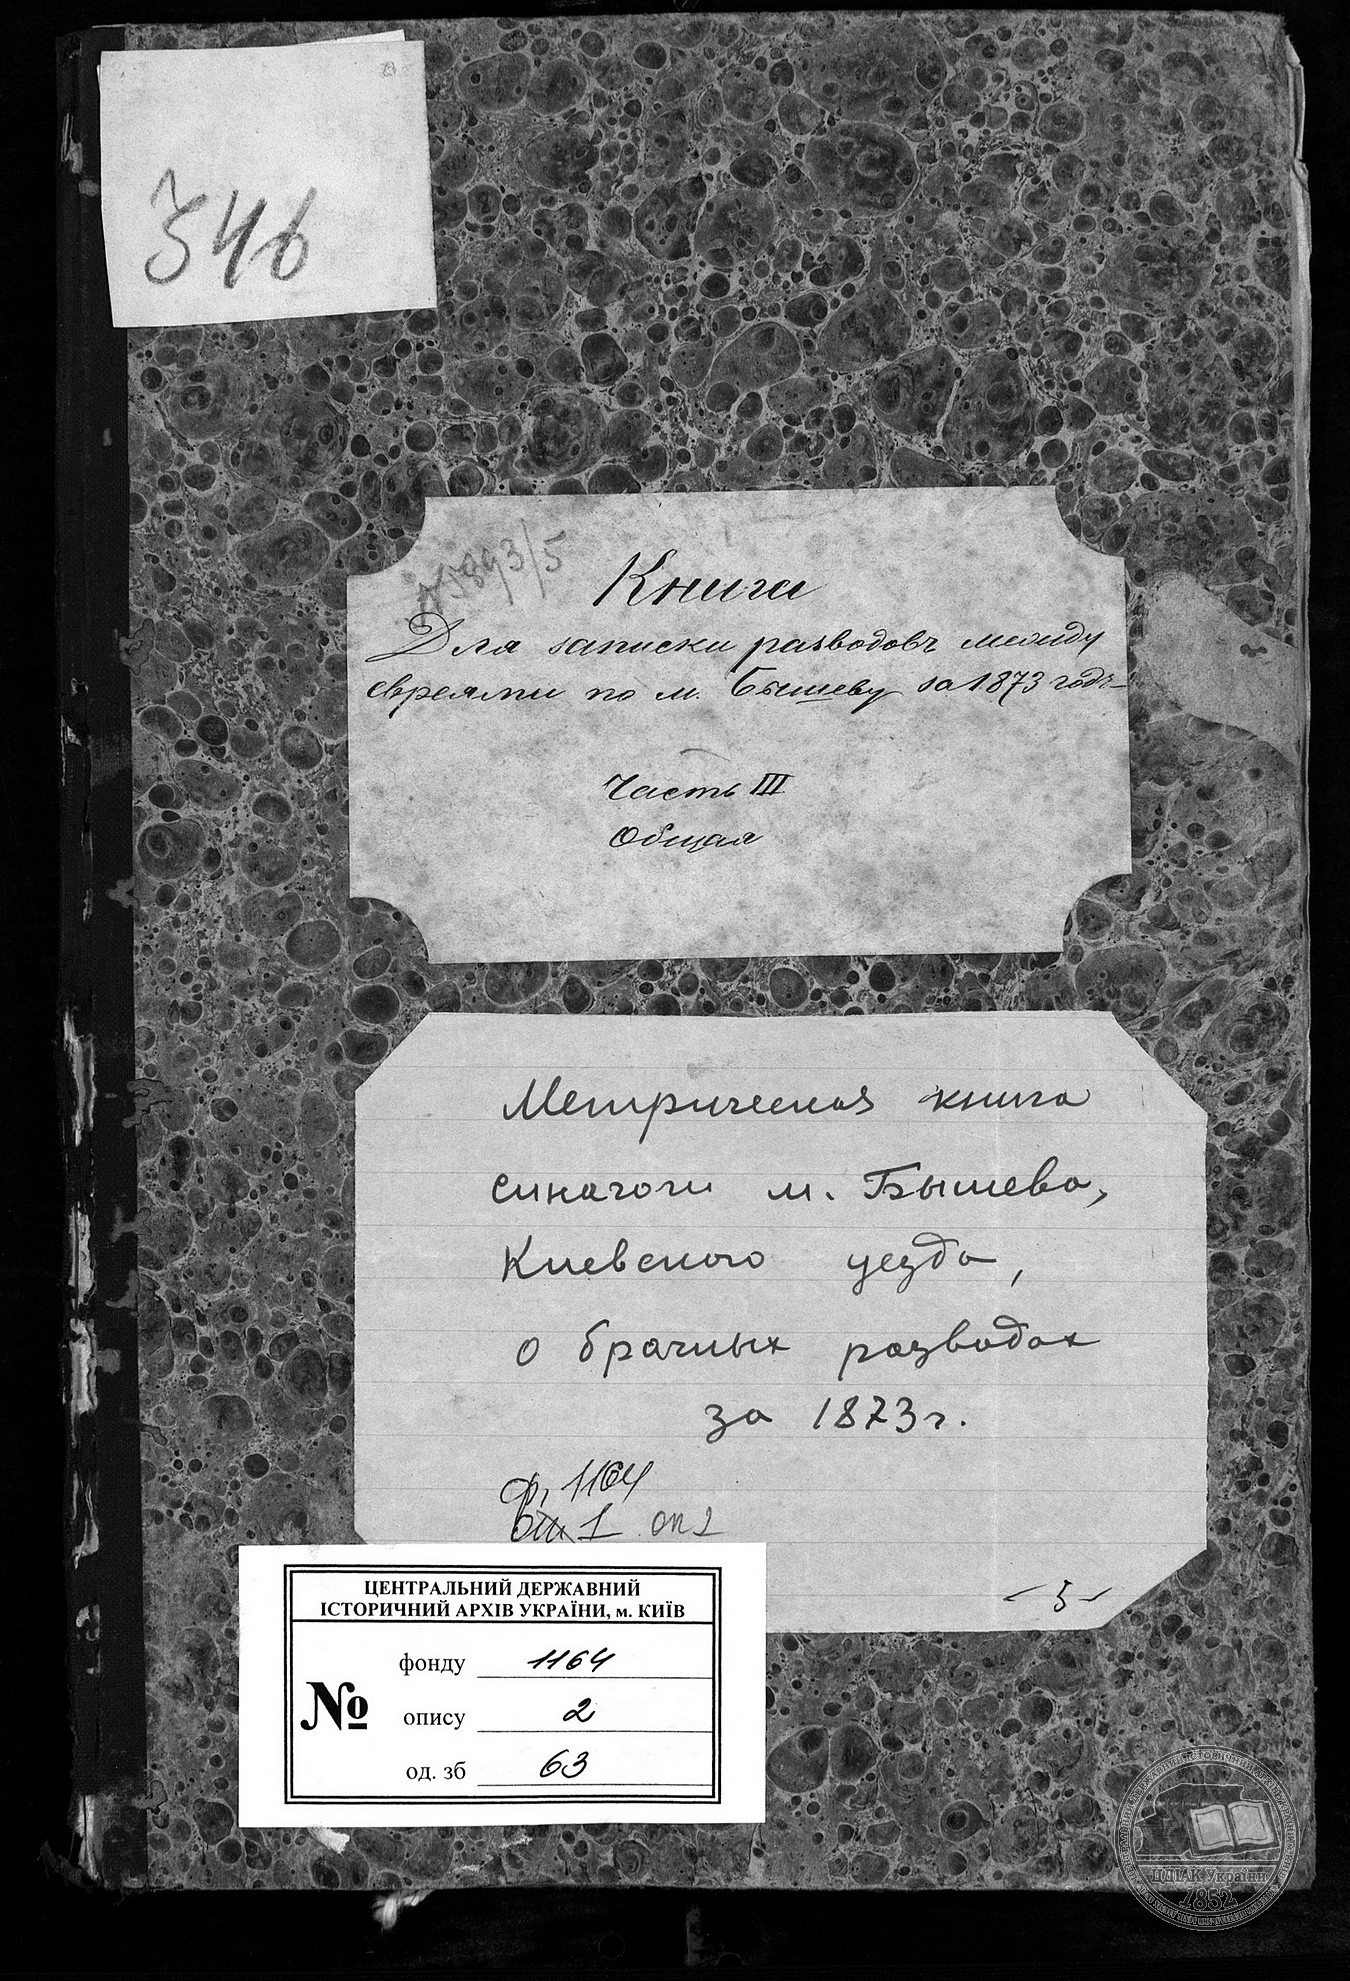 546
№ 893/5
Книга
Для записки разводовъ между
евреями по м. Бышеву за 1873 годъ
Часть III
Общая
Метрическая книга
синагоги м. Бышева,
Киевского уезда,
о брачных разводах
за 1873 г.
ф. 1164
оп 1 оп 2
-5-
ЦЕНТРАЛЬНИЙ ДЕРЖАВНИЙ
ІСТОРИЧНИЙ АРХІВ УКРАЇНИ, м. КИЇВ
№
фонду 1164
опису 2
од. зб 63
ЦДІАК України
1852